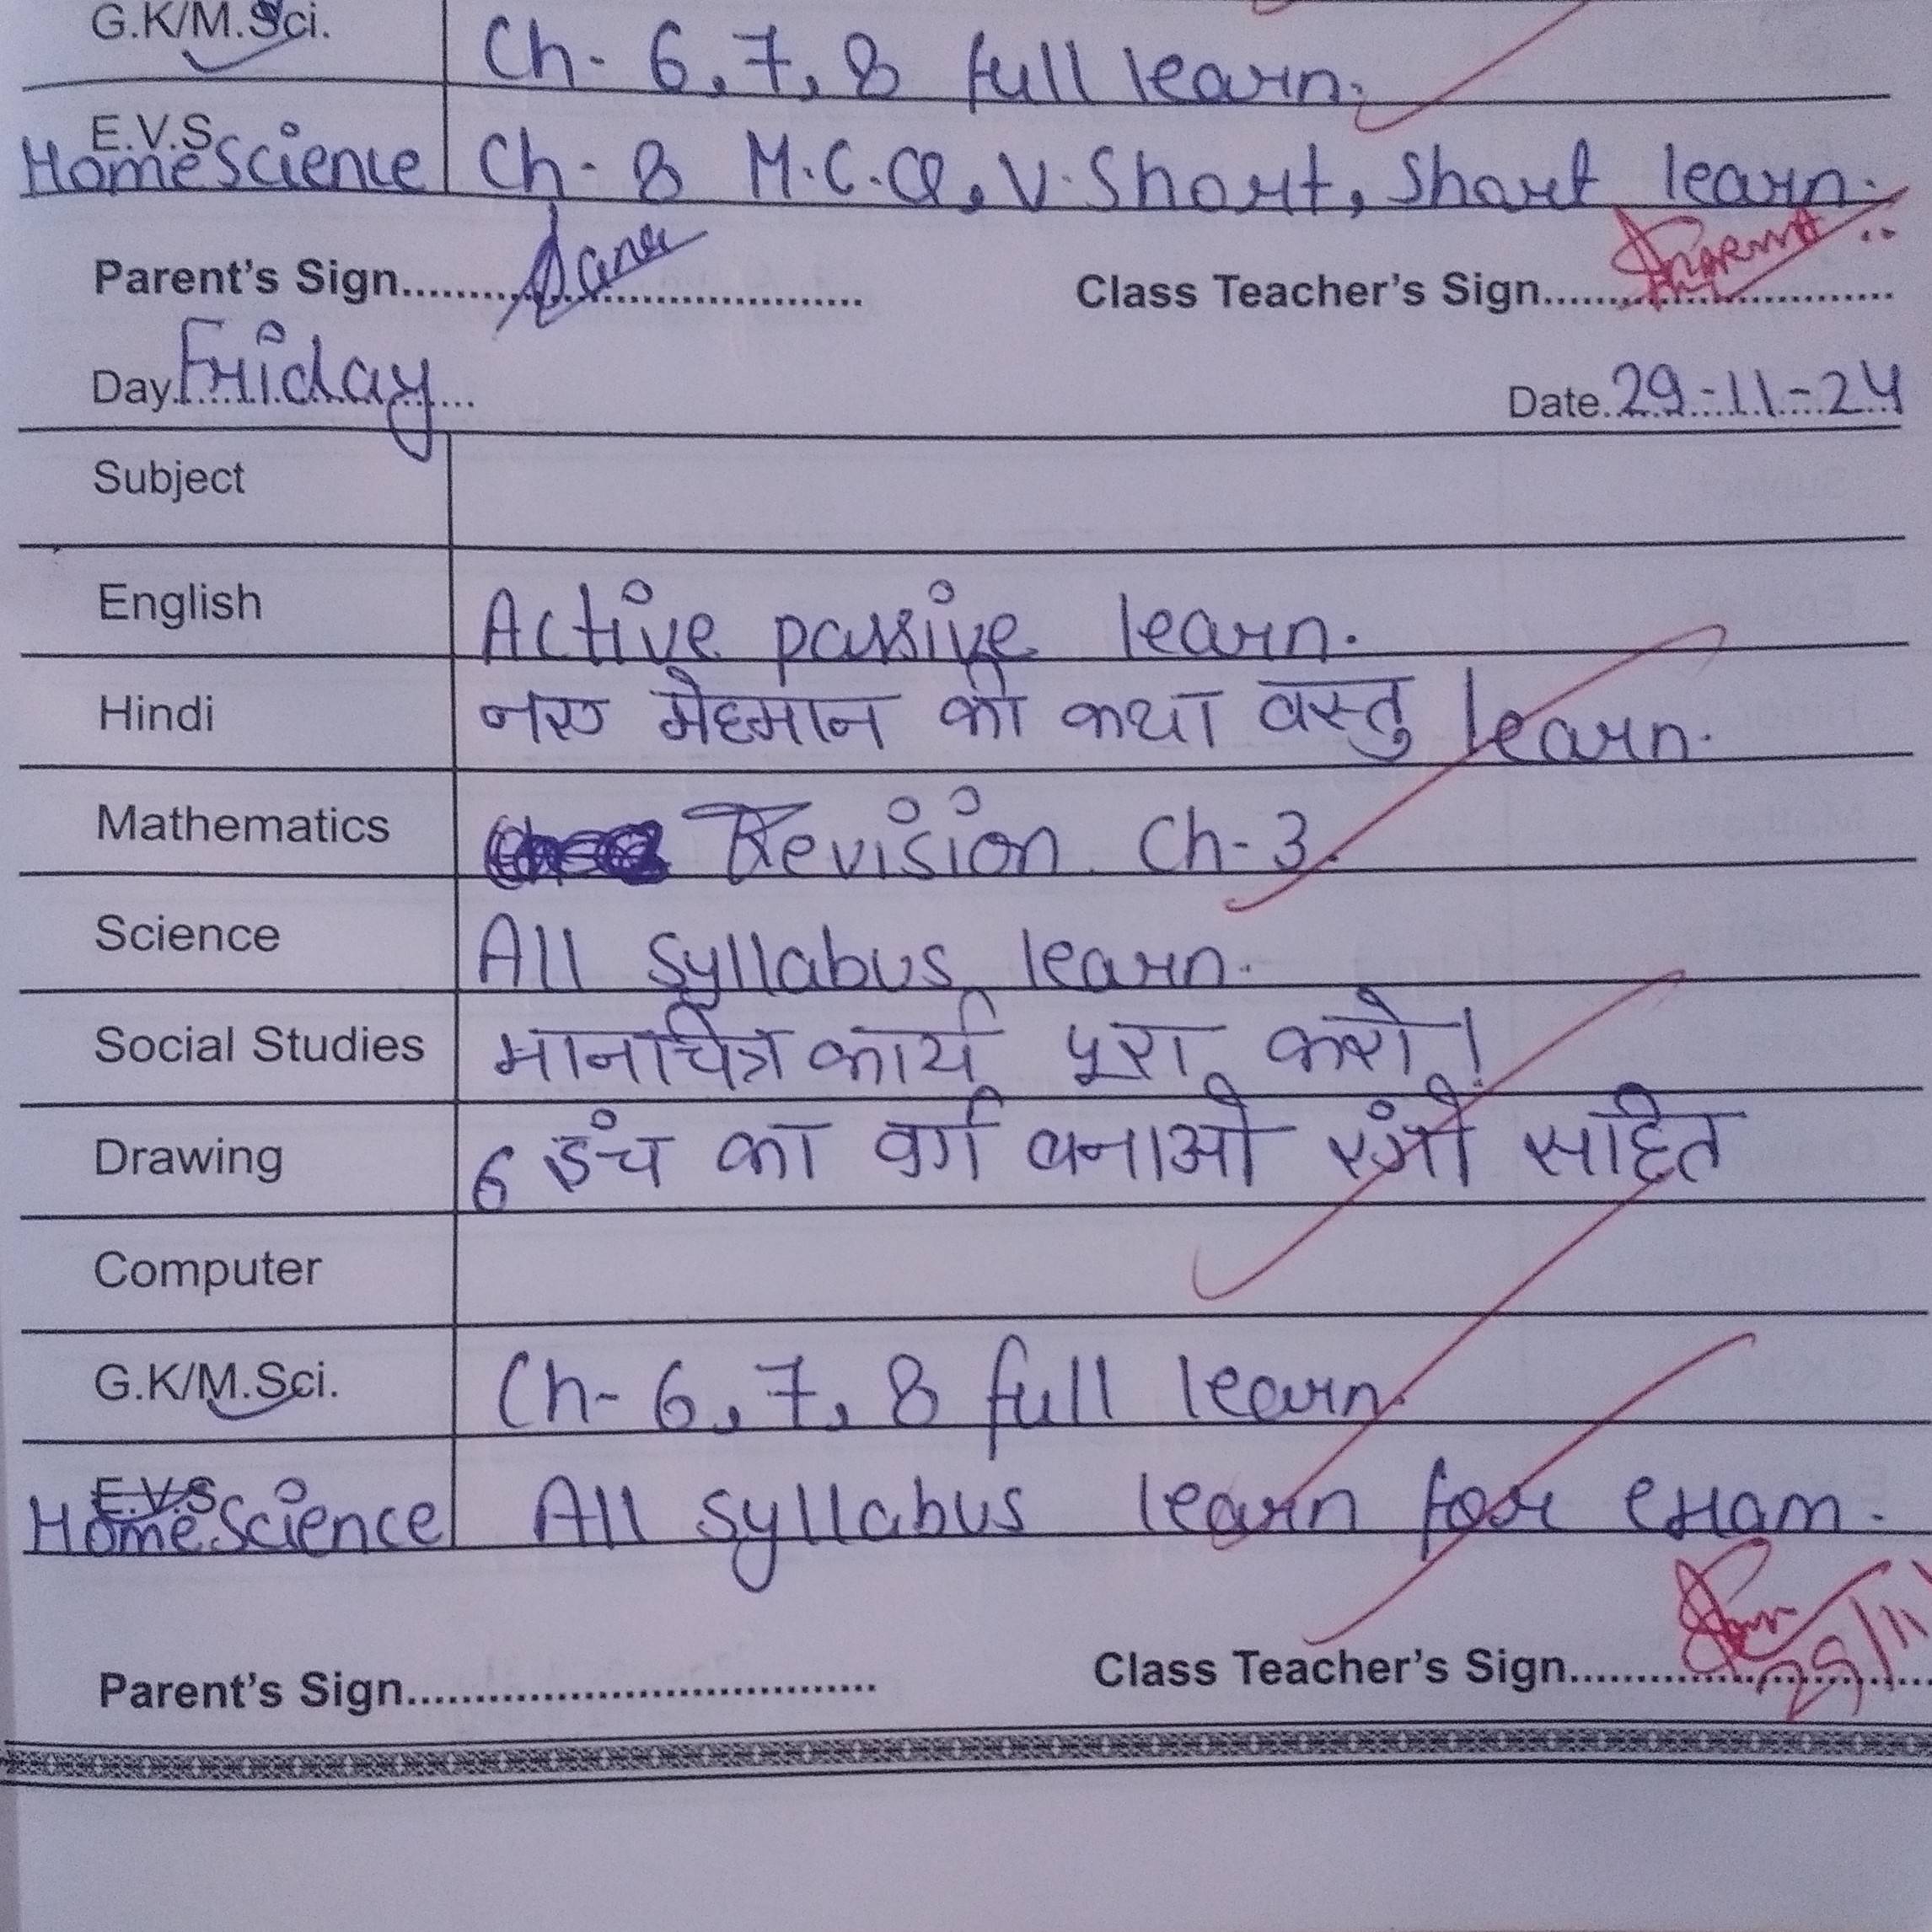 G.K/M.Sci. Ch- 6, 7, 8 full learn.
E.V.S
Home Science Ch- 8 M.C.Q, V. Short, Short learn.
Parent's Sign.......... Class Teacher's Sign..........
Day Friday Date 29-11-24
Subject
English Active passive learn.
Hindi नए मेहमान की कथा वस्तु learn.
Mathematics Revision Ch-3.
Science All syllabus learn.
Social Studies मानचित्र कार्य पूरा करो!
Drawing 6 इंच का वर्ग बनाओ रंगों सहित
Computer
G.K/M.Sci. Ch- 6, 7, 8 full learn.
E.V.S
Home Science All syllabus learn for exam.
Parent's Sign.......... Class Teacher's Sign..........
29/11